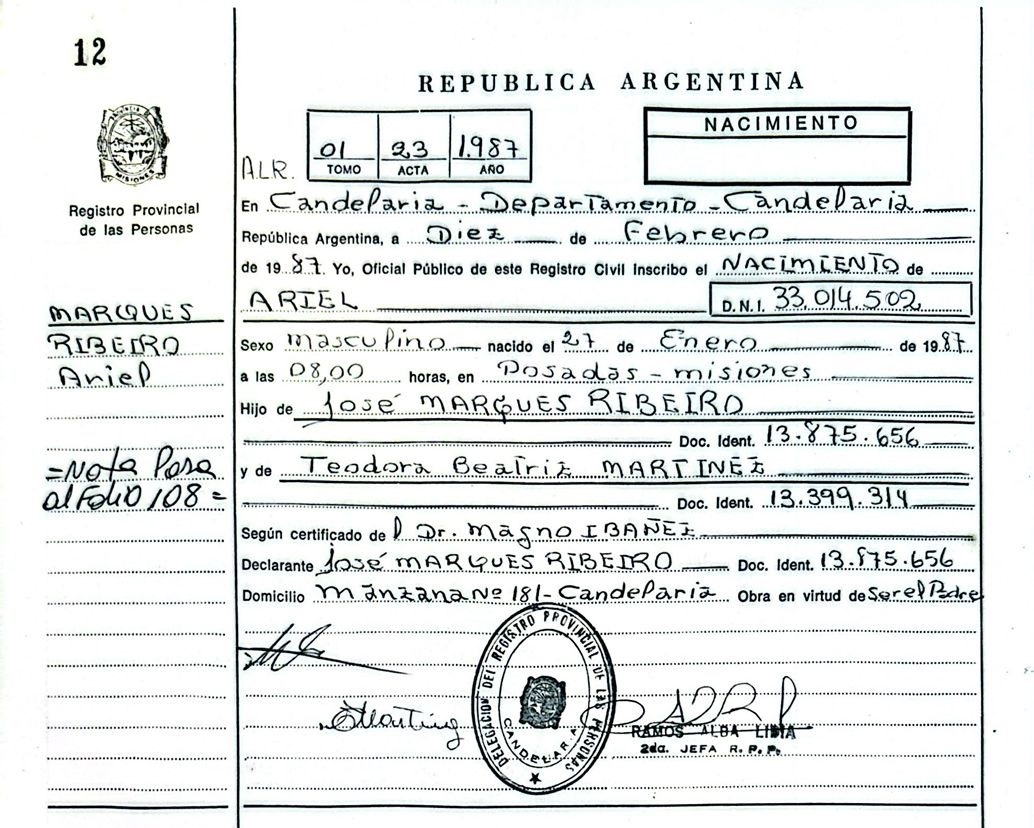 12
REPUBLICA ARGENTINA
PROVINCIA DE MISIONES
Registro Provincial
de las Personas
A.L.R.
01 23 1.987
TOMO ACTA AÑO
NACIMIENTO
En Candelaria - Departamento - Candelaria
República Argentina, a Diez de Febrero
de 19 87. Yo, Oficial Público de este Registro Civil Inscribo el NACIMIENTO de
ARIEL D.N.I. 33.014.502
MARQUES
RIBEIRO
Ariel
Sexo masculino nacido el 27 de Enero de 19 87
a las 08,00 horas, en Posadas - misiones
Hijo de José MARQUES RIBEIRO
Doc. Ident. 13.875.656
y de Teodora Beatriz MARTINEZ
Doc. Ident. 13.399.314
=Nota Pasa
al Folio 108=
Según certificado del Dr. Magno IBAÑEZ
Declarante José MARQUES RIBEIRO Doc. Ident. 13.875.656
Domicilio Manzana Nº 181 - Candelaria Obra en virtud de Ser el Padre
DELEGACION DEL REGISTRO PROVINCIAL DE LAS PERSONAS
CANDELARIA
RAMOS ALBA LIBIA
2da. JEFA R. P. P.